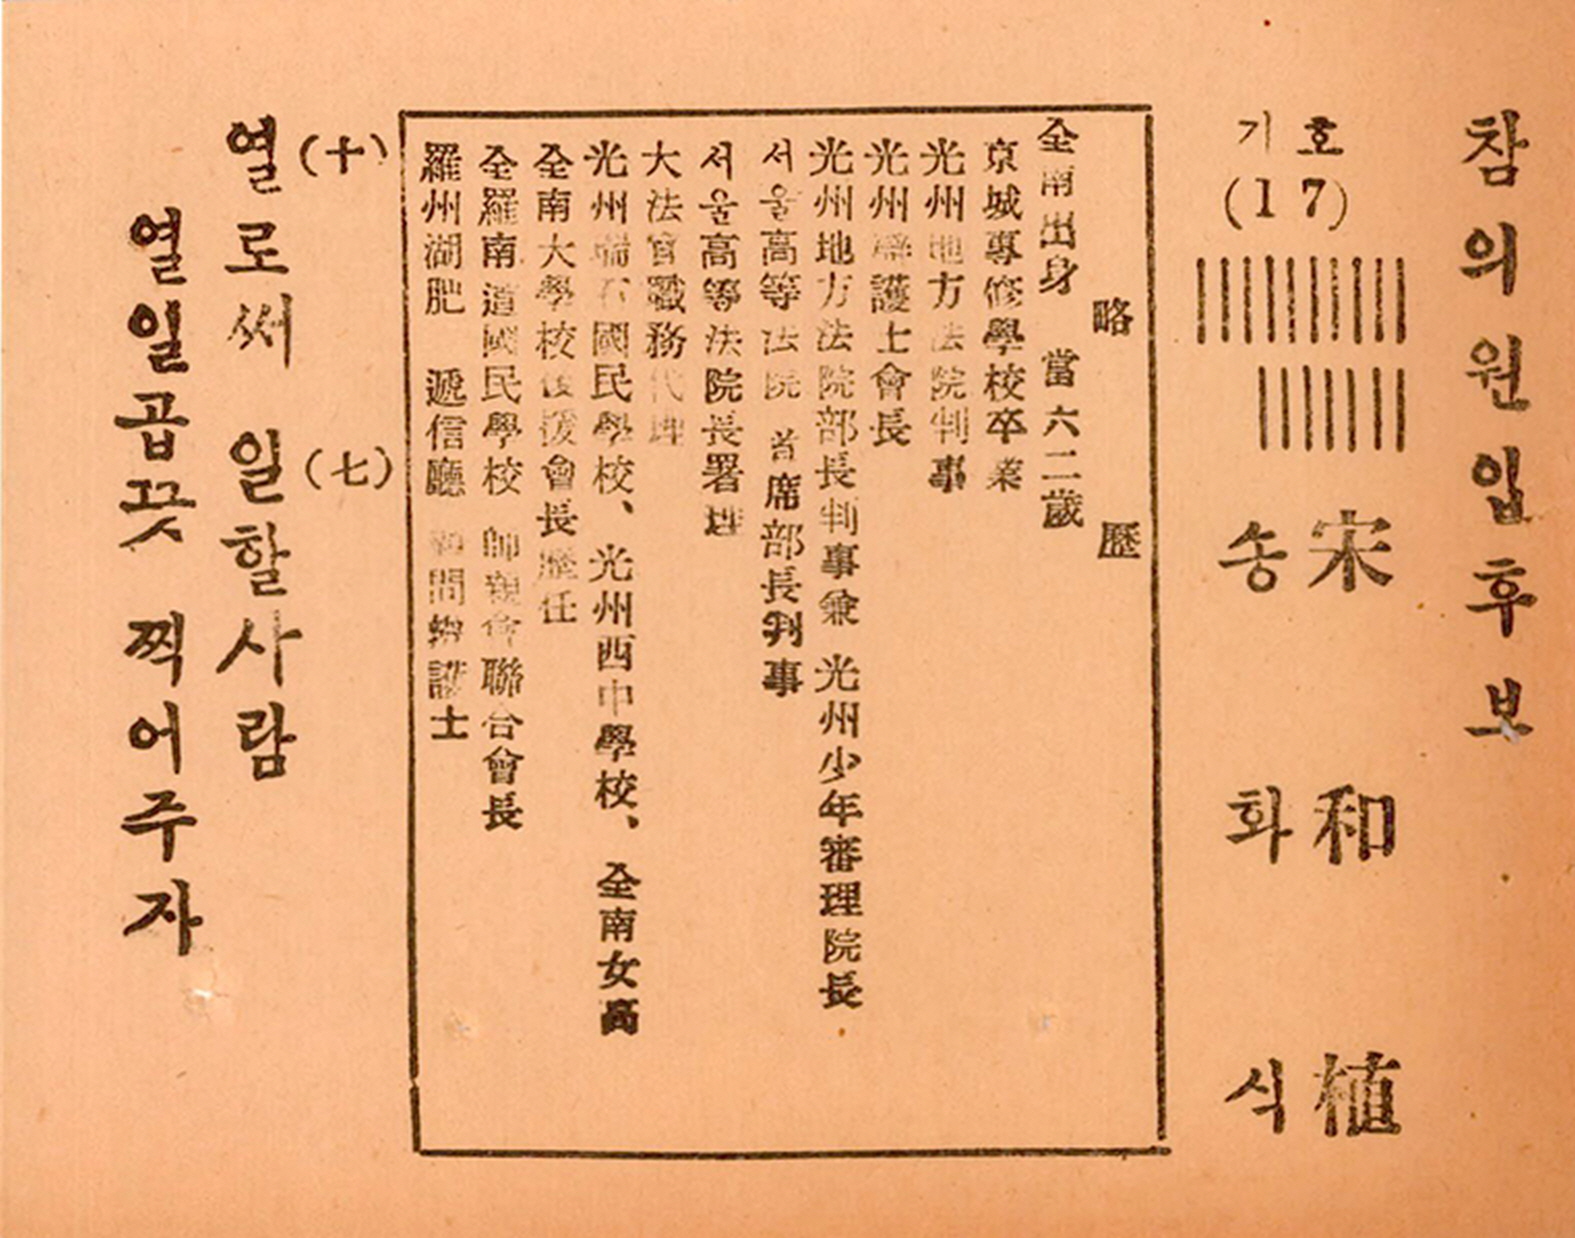 참의원입후보
기호
(17)
|||||||||| |||||||
宋和植
송화식
略歷
全南出身 當六二歲
京城專修學校卒業
光州地方法院判事
光州辯護士會長
光州地方法院部長判事兼 光州少年審理院長
서울高等法院 首席部長判事
서울高等法院長署理
大法官職務代理
光州瑞石國民學校、光州西中學校、全南女高
全南大學校後援會長歷任
全羅南道國民學校 師親會聯合會長
羅州湖肥 遞信廳 顧問辯護士
(十) (七)
열로써 일할사람
열일곱끗 찍어주자